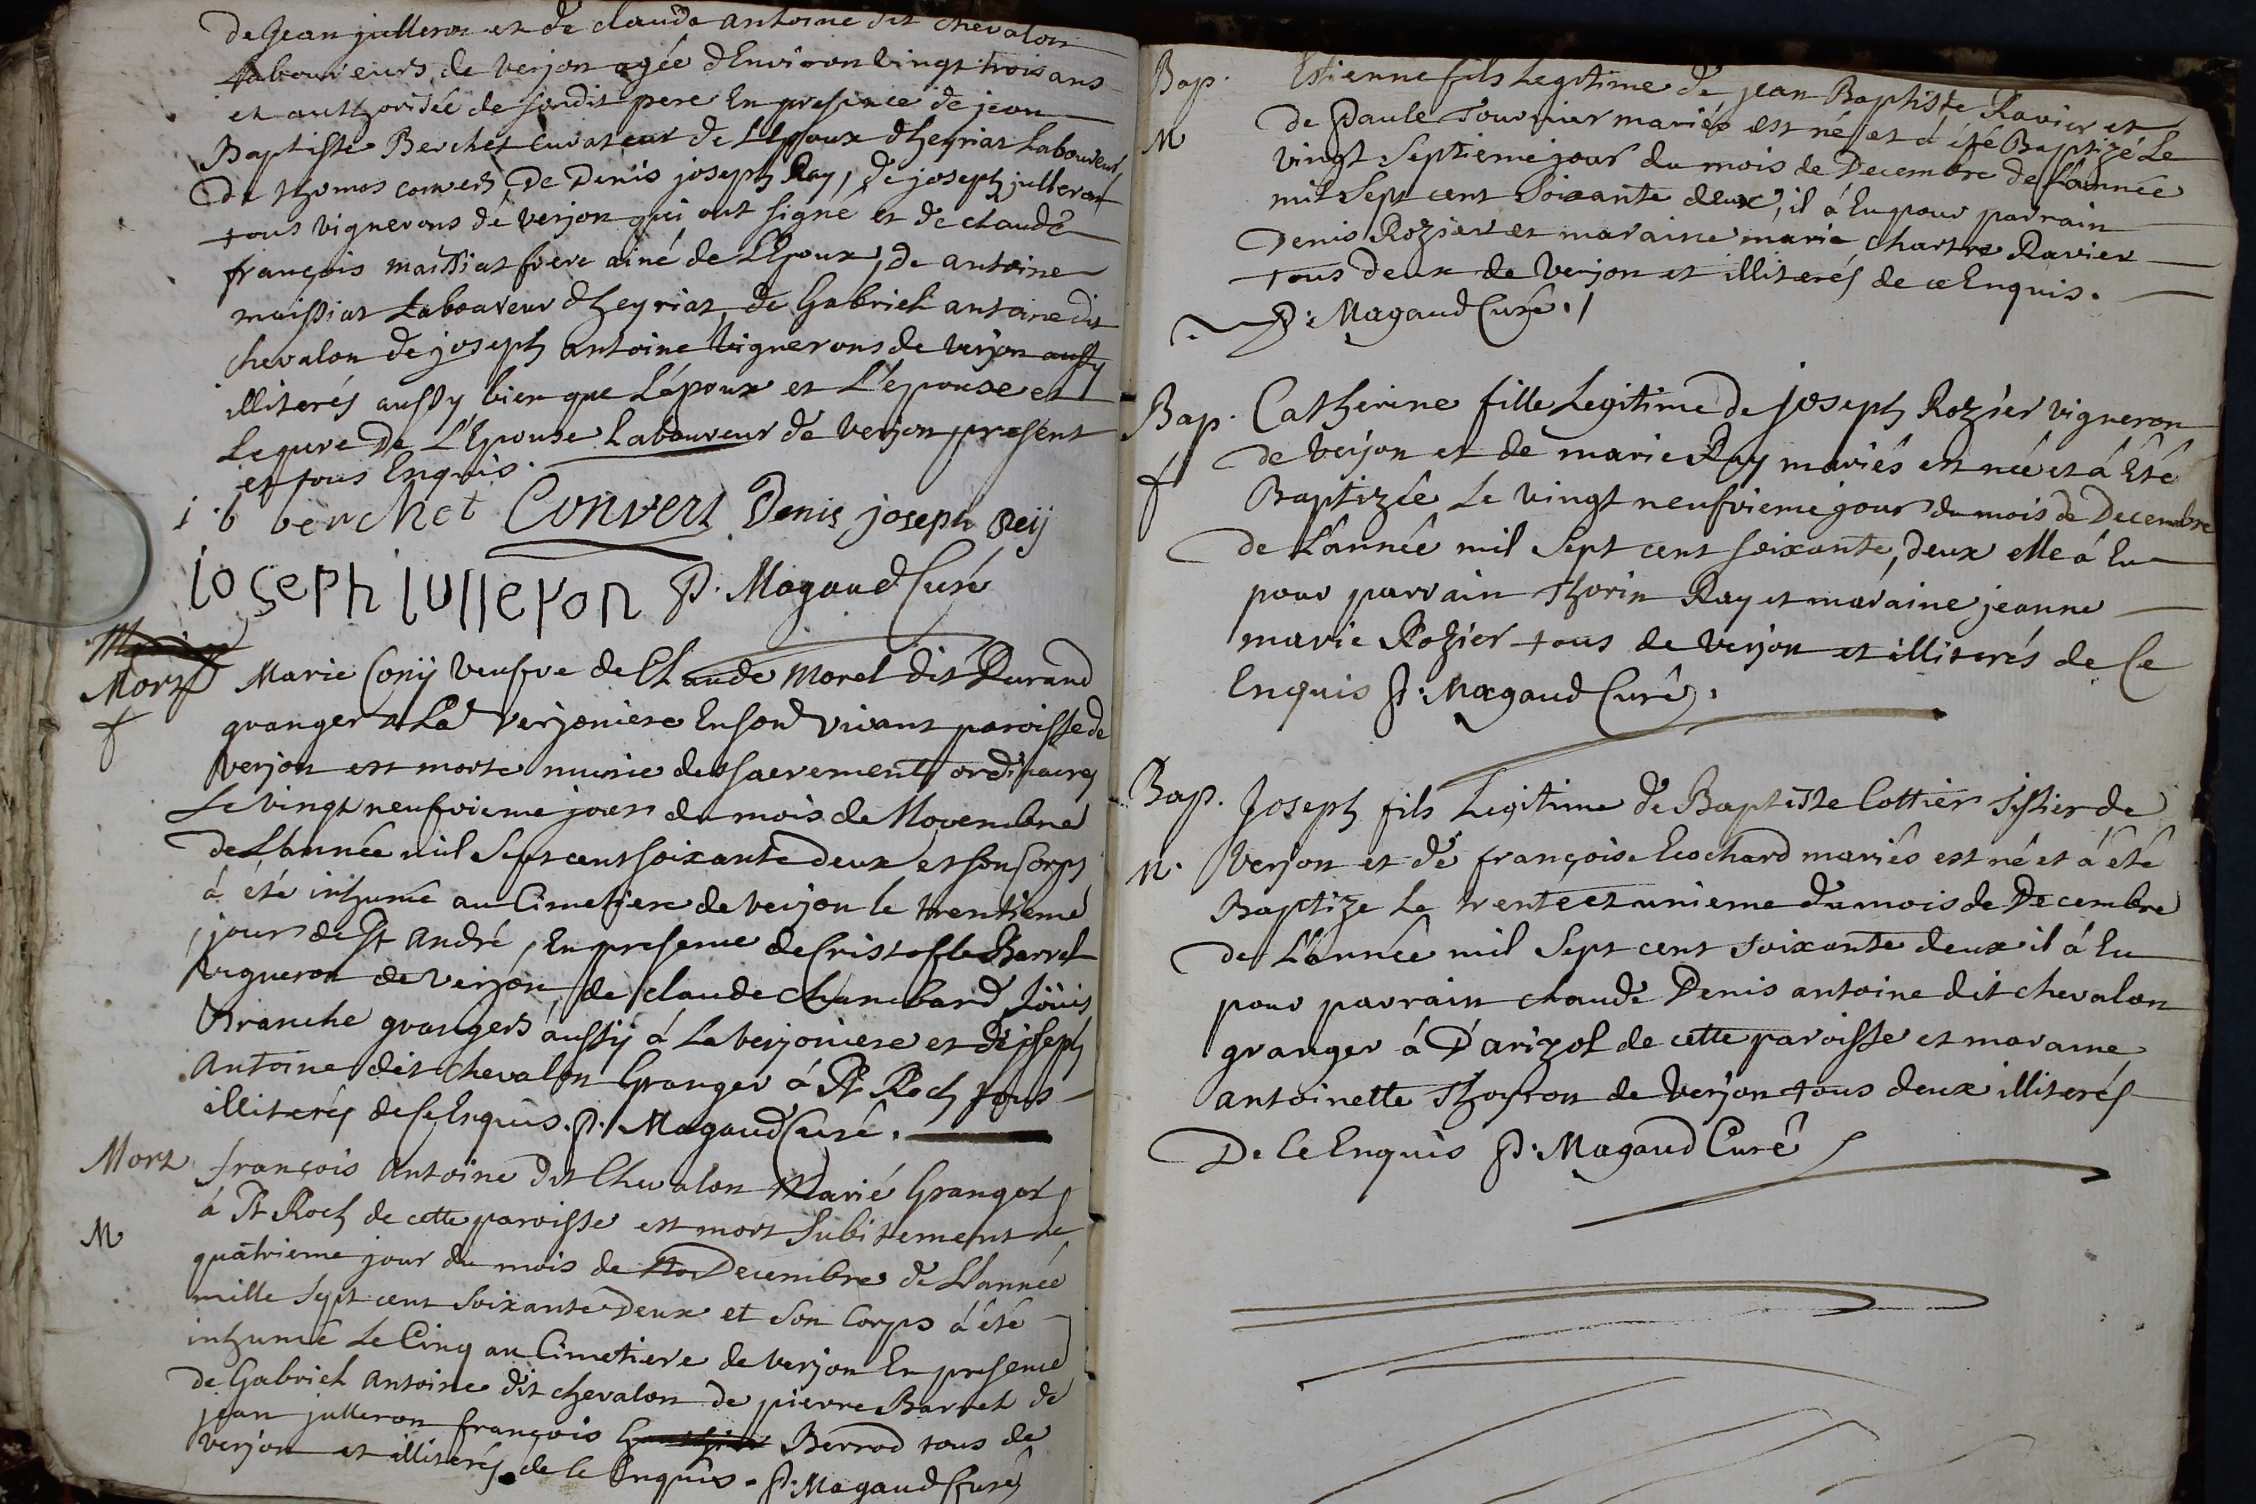 de Jean julleron et de claude antoine dit chevalon
Laboureurs de verjon agée d'Environ vingt trois ans
et authorisée de sondit pere En presence de jean
Baptiste Berchet curateur de L'Epoux d'heyriat Laboureur,
De thomas convers, De Denis joseph Ray, de joseph julleron
tous vignerons de verjon qui ont signé et de claude
françois maissiat frere ainé de L'Epoux, de antoine
maissiat Laboureur d'heyriat, de Gabriel antoine dit
chevalon de joseph antoine vignerons de verjon aussy
illiterés aussy bien que L'époux et L'epouse et
Le pere De L'Epouse Laboureur de verjon present
et tous Enquis.
j. b berchet Convert Denis joseph Reij
joseph julleron P. Magaud Curé
Mort Marie Conij veufve de Claude morel dit Durand
f granger a La verjoniere En son vivant paroisse de
verjon est morte munie des sacrements ordinaires
Le vingt neufvieme jour du mois de Novembre
de L'année mil sept cent soixante deux et son corps
à été inhumé au Cimetiere de verjon le trentieme
jour de st André, En presence de Cristofle Barrel
vigneron de verjon, de claude Chambard, Loüis
Branche grangers aussij á La verjoniere et de joseph
Antoine dit chevalon Granger á St Roch tous
illiterés de ce Enquis. P. Magaud Curé.
Mort françois Antoine dit Chevalon Marié Granger
á St Roch de cette paroisse est mort subitement le
M quatrieme jour du mois de No Decembre de L'année
mille sept cent soixante Deux et son corps á été
inhumé Le Cinq au Cimetiere de verjon En presence
de Gabriel Antoine dit chevalon de pierre Barrel de
jean julleron françois Berrod tous de
verjon et illiterés de ce Enquis. P. Magaud Curé
Bap. Estienne fils Legitime de jean Baptiste Ravier et
de Paule Tournier mariés est né et á été Baptizé Le
M vingt Septieme jour du mois de Decembre de L'année
mil Sept cent Soixante deux, il á Eu pour parrain
Denis Rozier et maraine marie Chartre Ravier
tous deux de verjon et illiterés de ce Enquis.
P. Magaud Curé.
Bap. Catherine fille Legitime de joseph Rozier vigneron
f de verjon et de marie Ray mariés est née et á Eté
Baptizée Le vingt neufvieme jour du mois de Decembre
de L'année mil Sept cent soixante, deux elle á Eu
pour parrain Thorin Ray et maraine jeanne
marie Rozier tous de verjon et illiterés de Ce
Enquis P. Magaud Curé.
Bap. Joseph fils Legitime de Baptiste Cottier de
M. verjon et de françoise Ecochard mariés est né et á été
Baptize Le trente et unieme du mois de Decembre
de L'année mil Sept cent soixante deux il á Eu
pour parrain claude Denis antoine dit chevalon
granger á D'arizol de cette paroisse et maraine
antoinette Thoyron de verjon tous deux illiterés
De Ce Enquis P. Magaud Curé